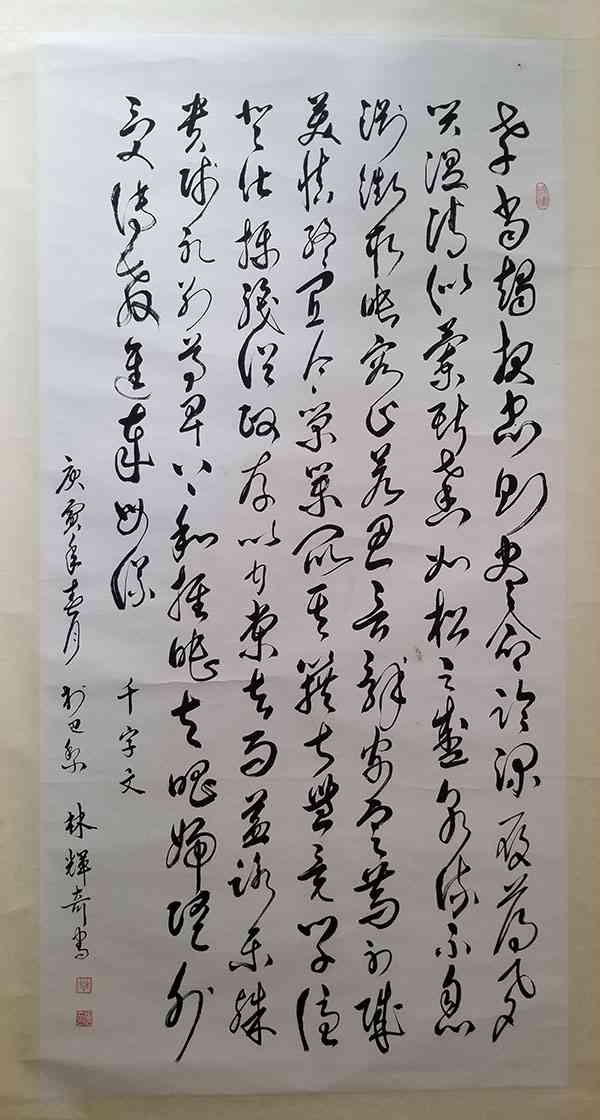 孝當竭力忠則盡命臨深履薄夙
興溫凊似蘭斯馨如松之盛川流不息
淵澄取映容止若思言辭安定篤初誠
美慎終宜令榮業所基籍甚無竟學優
登仕攝職從政存以甘棠去而益詠樂殊
貴賤禮別尊卑上和下睦夫唱婦隨外
受傅訓入奉母儀
千字文
庚寅年春月於巴黎林輝奇書